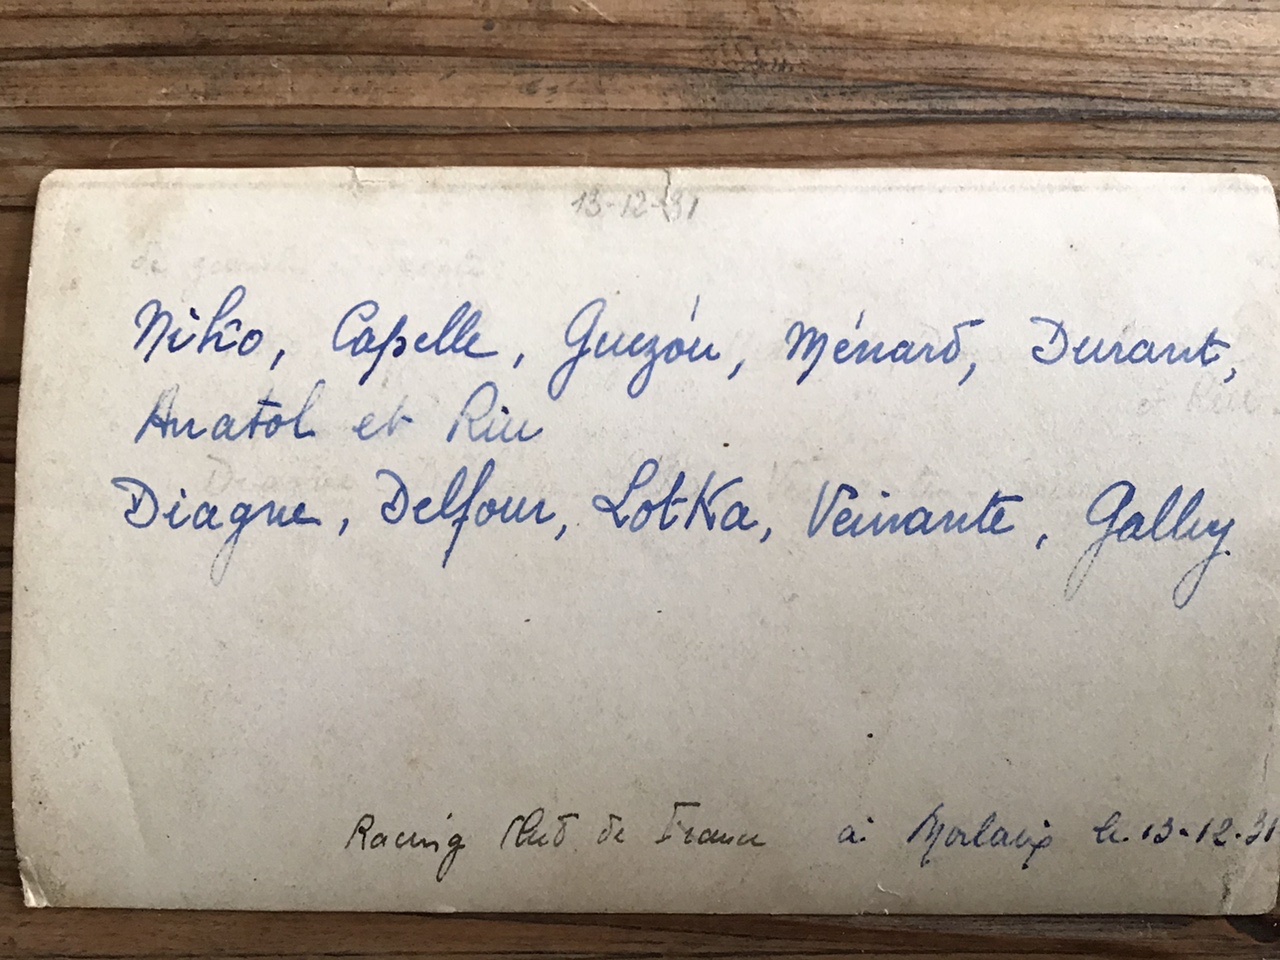 13-12-31
de gauche à droite
Niño, Capelle, Guezou, Ménard, Durant,
Anatol et Riu
Diagne, Delfour, Lotka, Veinante, Galley
Racing Club de France à Morlaix le 13-12-31